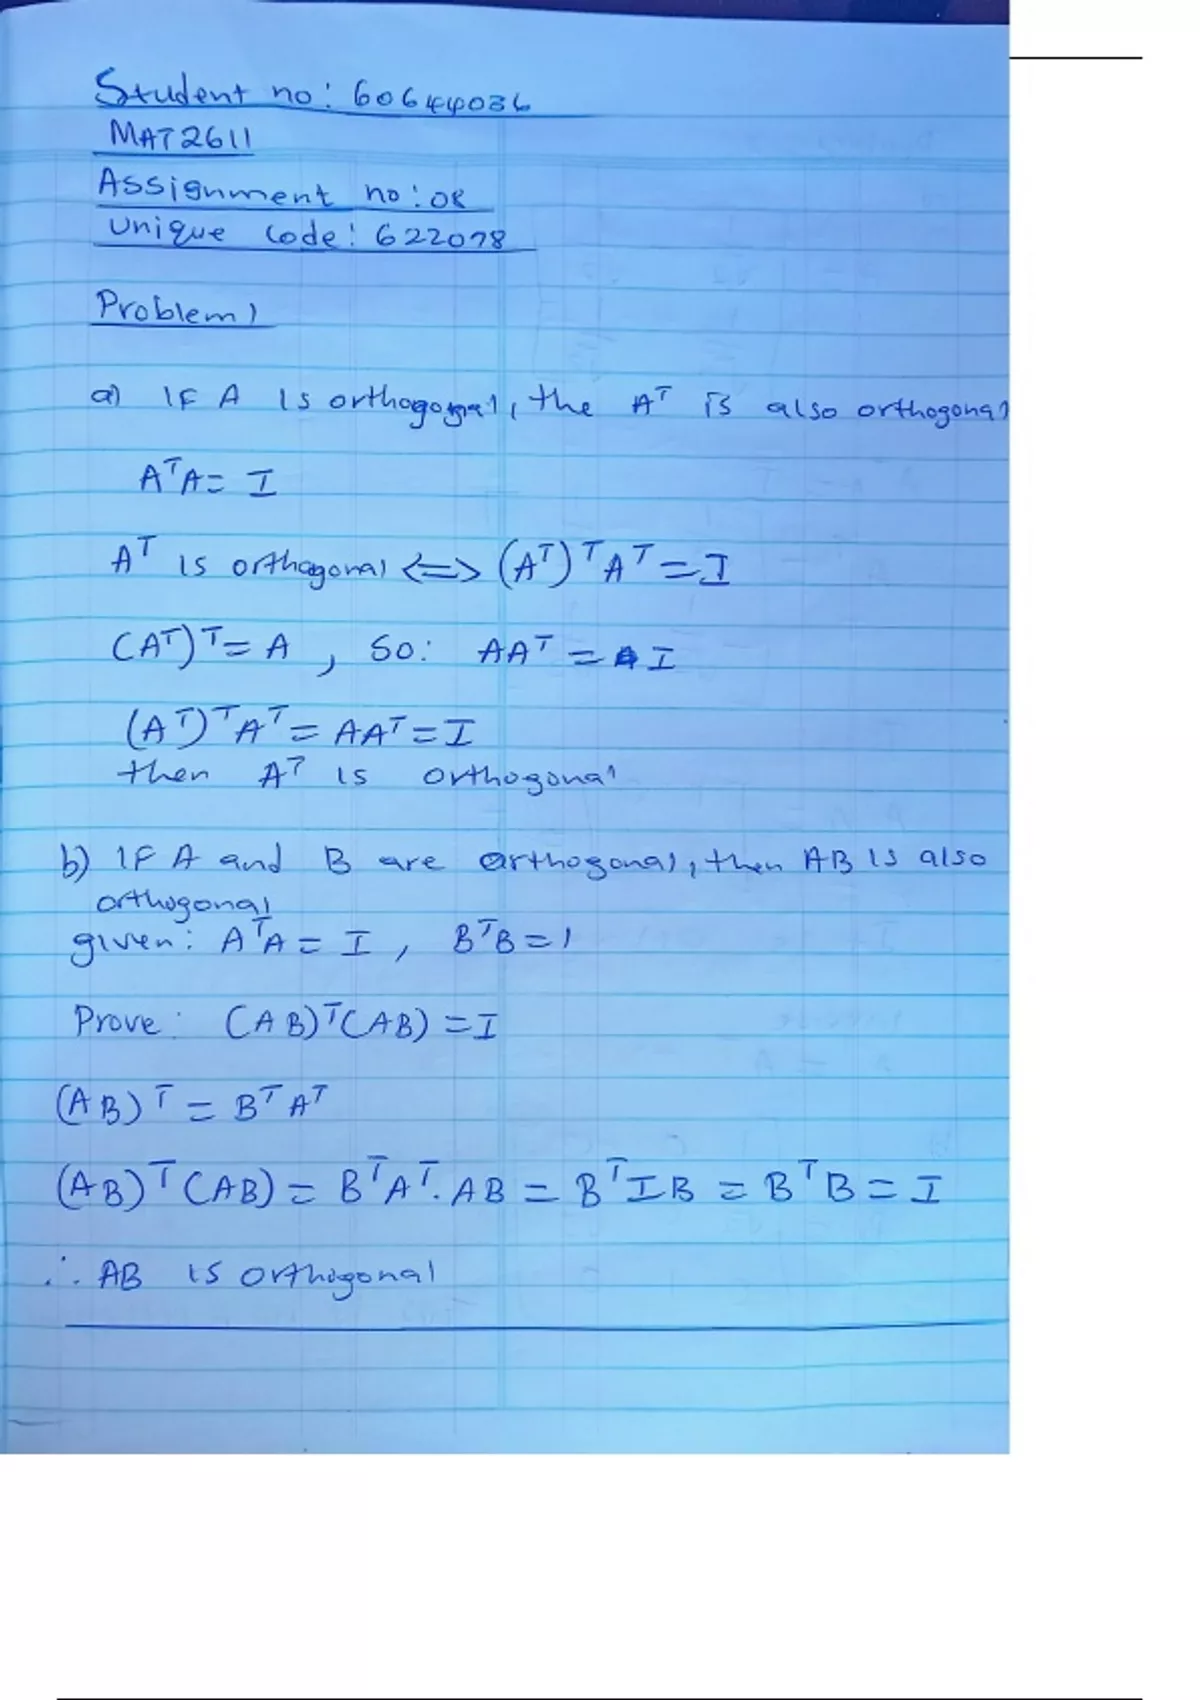 Student no: 60644036
MAT2611
Assignment no: 08
unique code: 622078
Problem 1
a) IF A Is orthogonal, the Aᵀ is also orthogonal
AᵀA = I
Aᵀ is orthogonal <=> (Aᵀ)ᵀAᵀ = I
(Aᵀ)ᵀ = A , so: AAᵀ = I
(Aᵀ)ᵀAᵀ = AAᵀ = I
then Aᵀ is orthogonal
b) IF A and B are orthogonal, then AB is also
orthogonal
given: AᵀA = I , BᵀB = I
Prove: (AB)ᵀ(AB) = I
(AB)ᵀ = BᵀAᵀ
(AB)ᵀ(AB) = BᵀAᵀ.AB = BᵀIB = BᵀB = I
∴ AB is orthogonal